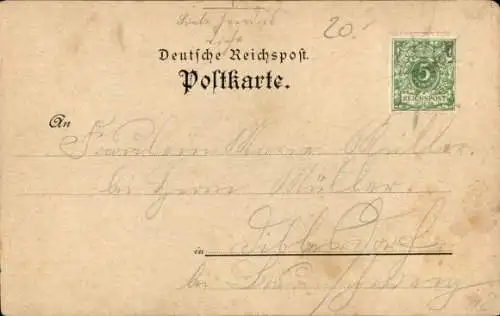 20.
Deutsche Reichspost.
Postkarte.
5
REICHSPOST
An
Fräulein Marie Müller.
bei Herrn Müller.
in
bei Braunschweig